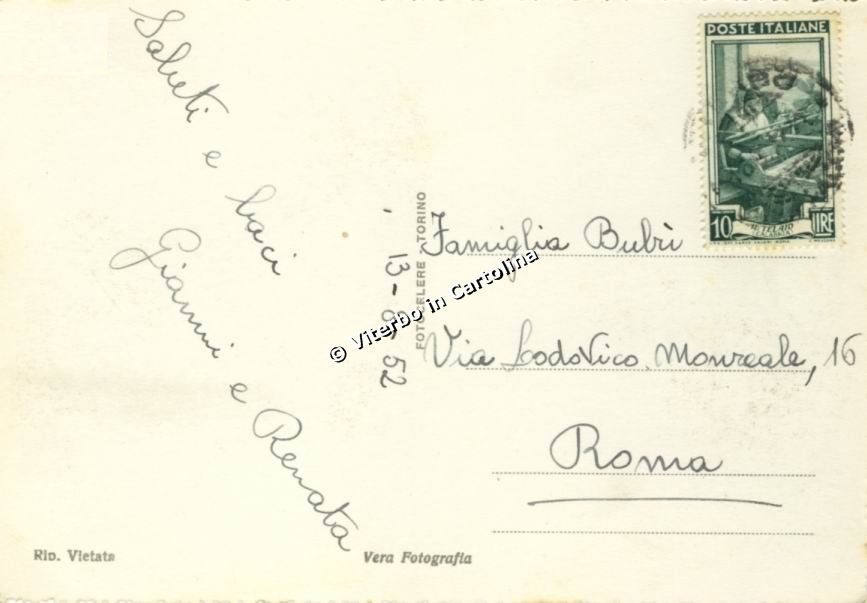 Saluti e baci
Gianni e Renata
13-8-52
FOTOCELERE TORINO
POSTE ITALIANE
10 LIRE
IL TELAIO
CALABRIA
Famiglia Bubrì
Via Lodovico Monreale, 16
Roma
© Viterbo in Cartolina
Rip. Vietata
Vera Fotografia